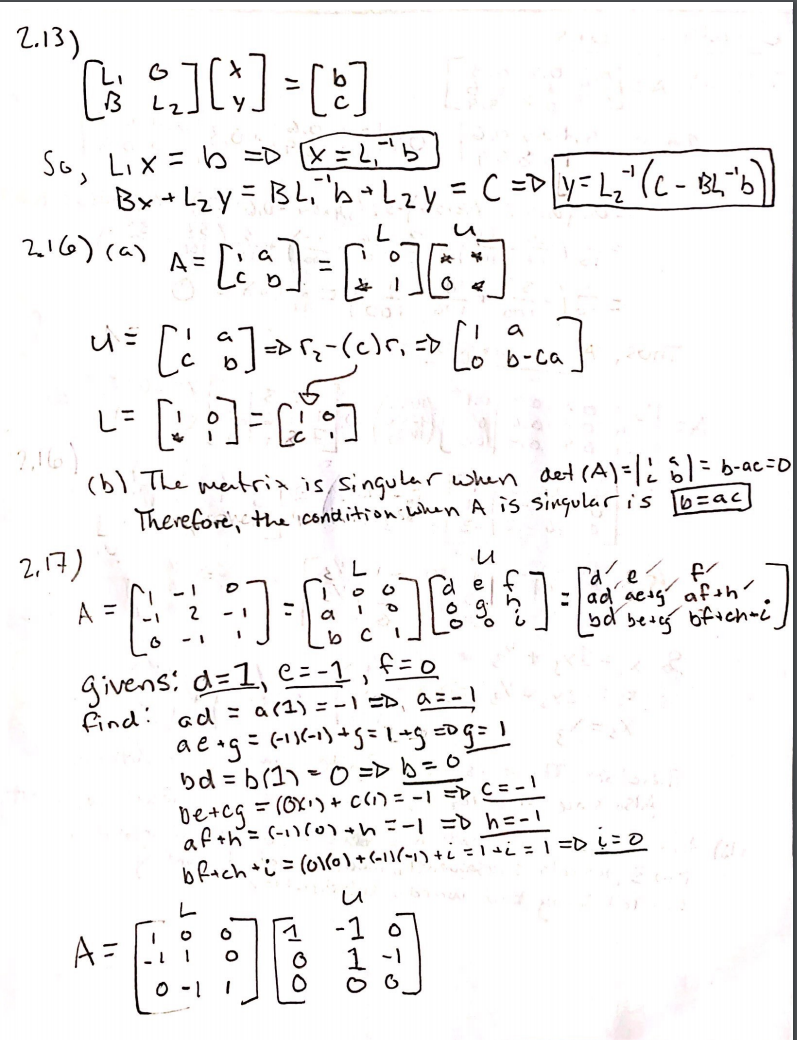 2.13)
[L₁ 0; B L₂][x; y] = [b; c]
So, L₁x = b => x = L₁⁻¹b
Bx + L₂y = BL₁⁻¹b + L₂y = C => y = L₂⁻¹(C - BL₁⁻¹b)
2.16) (a) A = [1 a; c b] = L [1 0; * 1] U [* *; 0 *]
U = [1 a; c b] => r₂-(c)r₁ => [1 a; 0 b-ca]
L = [1 0; * 1] = [1 0; c 1]
2.16)
(b) The matrix is singular when det(A) = |1 a; c b| = b-ac=0
Therefore, the condition when A is singular is b=ac
2.17)
A = [1 -1 0; -1 2 -1; 0 -1 1] = L [1 0 0; a 1 0; b c 1] U [d e f; 0 g h; 0 0 i] = [d e f; ad ae+g af+h; bd be+cg bf+ch+i]
givens: d=1, e=-1, f=0
find: ad = a(1) = -1 => a=-1
ae+g = (-1)(-1)+g = 1+g => g=1
bd = b(1) = 0 => b=0
be+cg = (0)(1) + c(1) = -1 => c=-1
af+h = (-1)(0)+h = -1 => h=-1
bf+ch+i = (0)(0)+(-1)(-1)+i = 1+i = 1 => i=0
A = L [1 0 0; -1 1 0; 0 -1 1] U [1 -1 0; 0 1 -1; 0 0 0]